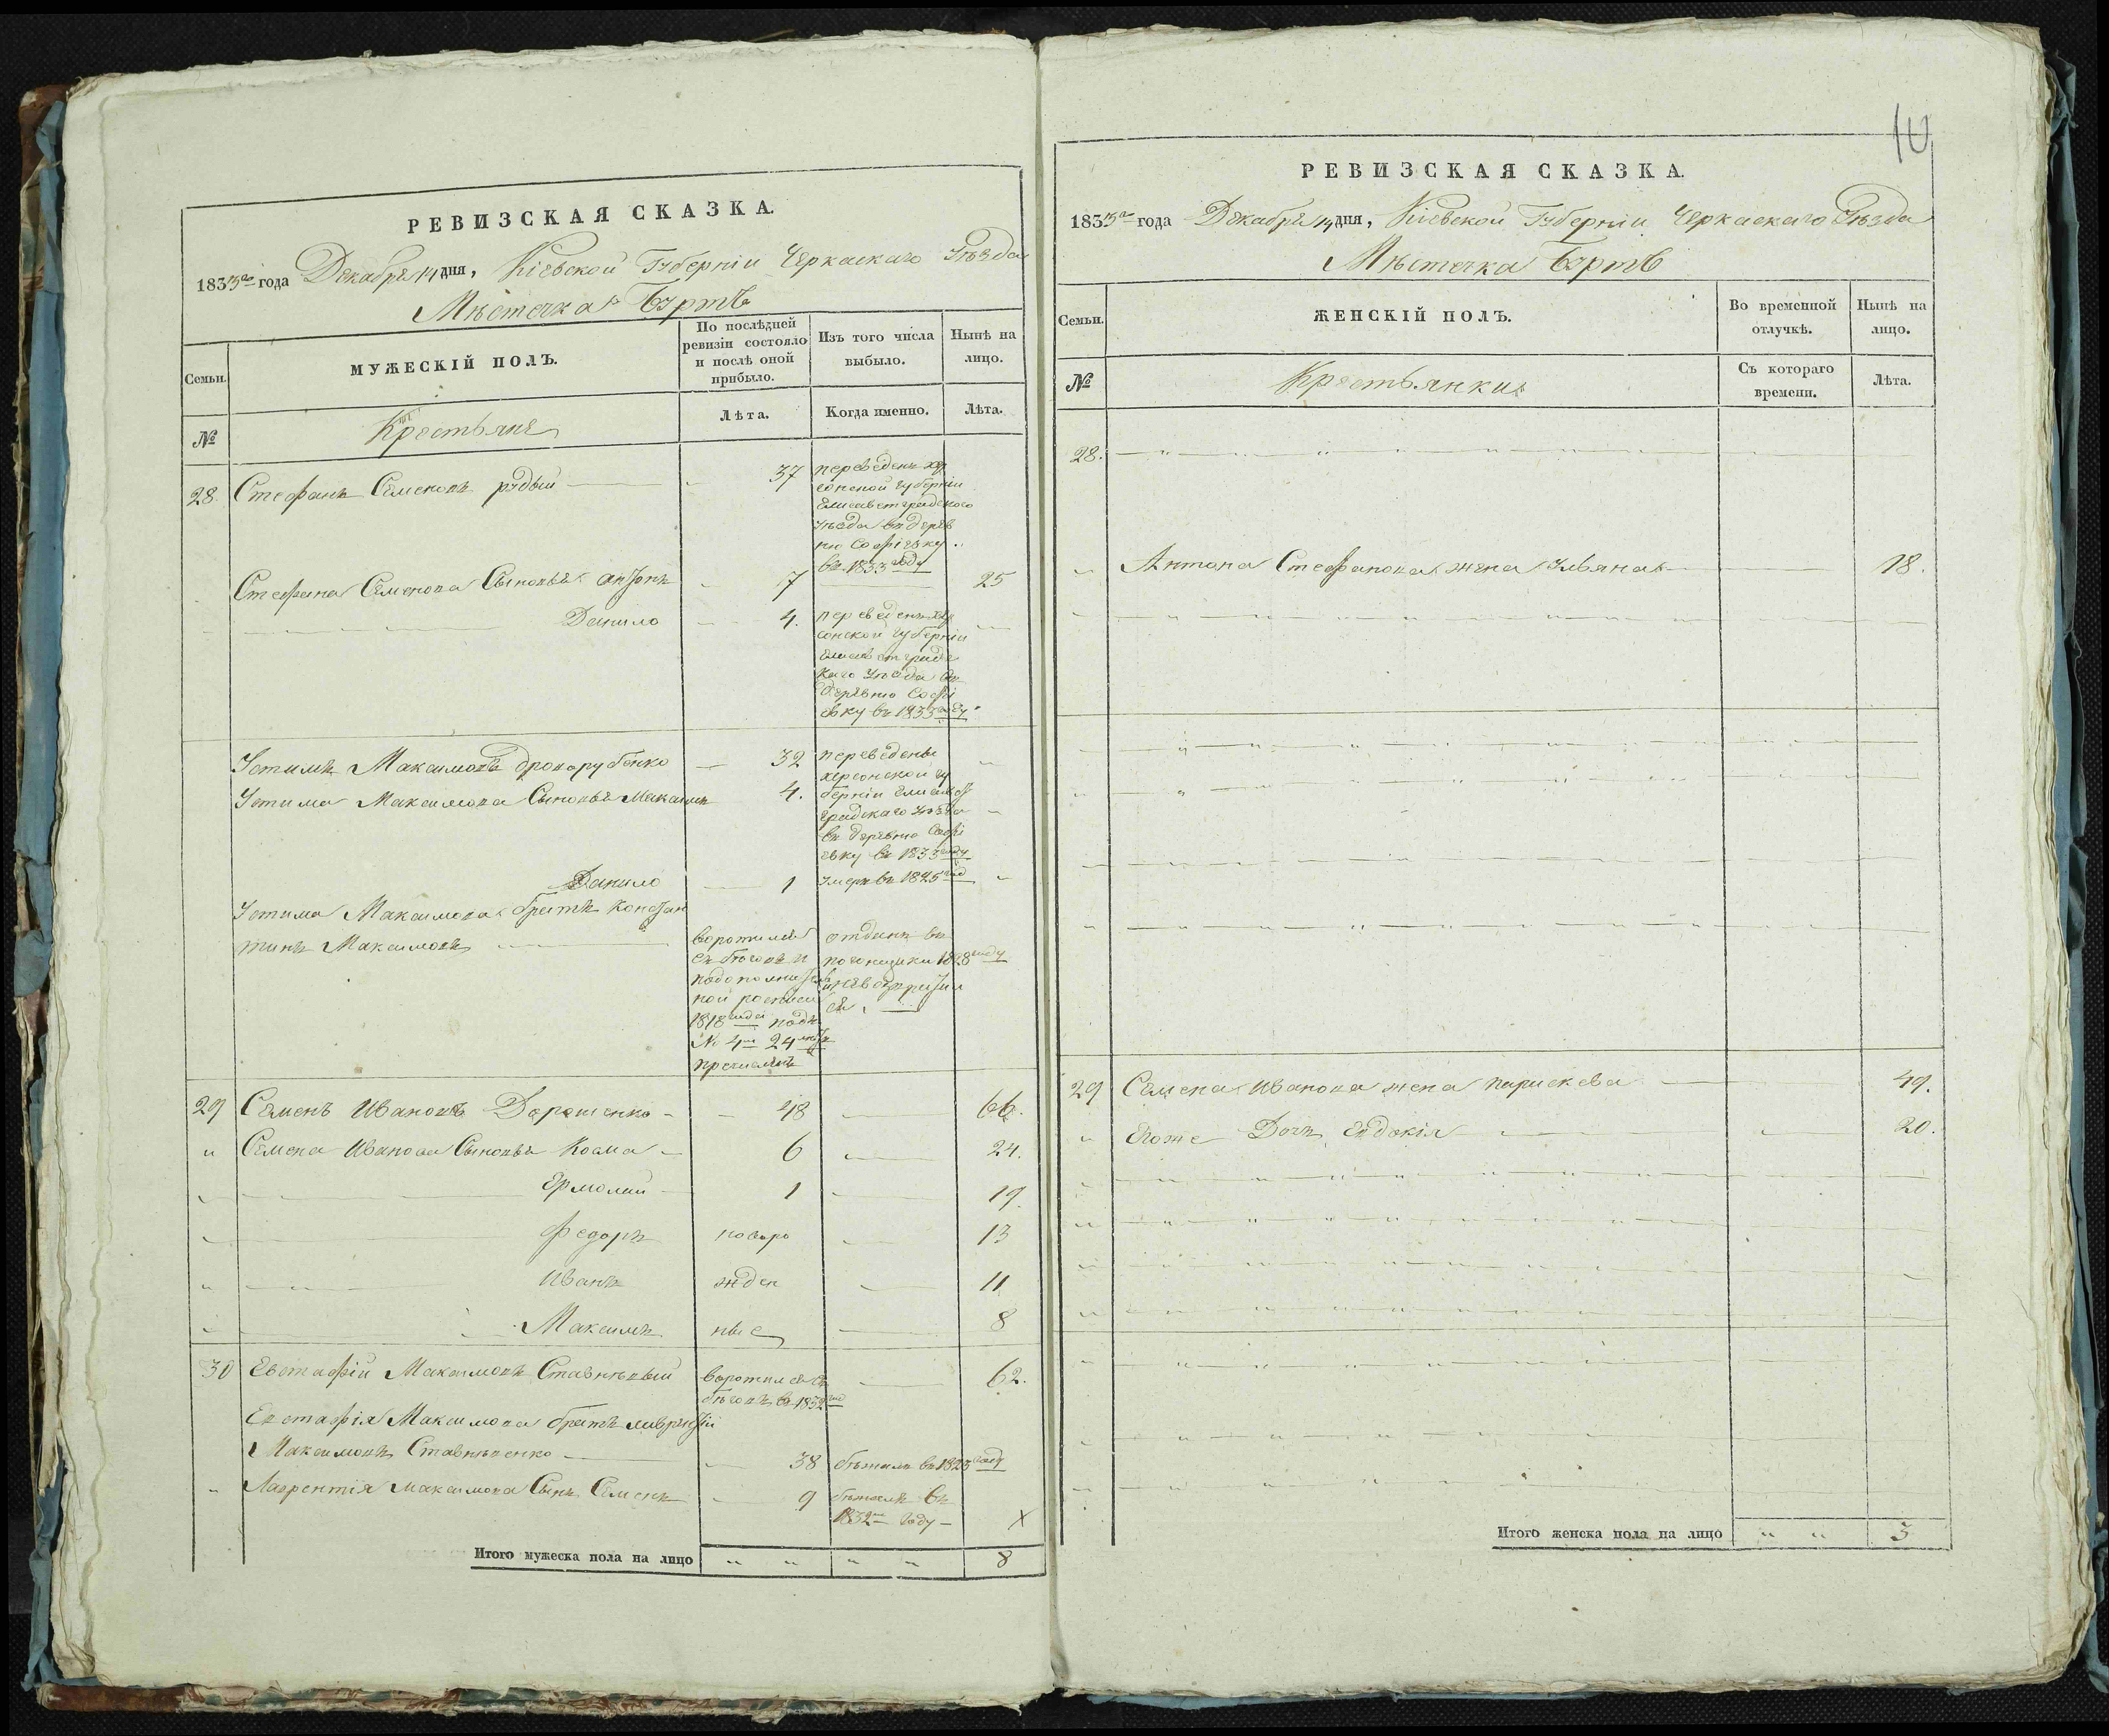 РЕВИЗСКАЯ СКАЗКА.
1835го года Декабря 14 дня, Кіевской Губерніи Черкаскаго Уѣзда
Мѣстечка Буртъ
Семьи. МУЖЕСКІЙ ПОЛЪ. По послѣдней ревизіи состояло и послѣ оной прибыло. Изъ того числа выбыло. Нынѣ на лицо.
№ Крестьяне Лѣта. Когда именно. Лѣта.
28. Стефанъ Семеновъ рудый 37 переведенъ хер
сонской губерніи
Елисаветградского
уѣзда въ дерев
ню Софіевку
въ 1833 году
Стефана Семенова Сыновья Антонъ 7 25
Данило 4. переведенъ хер
сонской губерніи
Елисаветградс
каго уѣзда въ
деревню Софі
евку въ 1833 году
Устимъ Максимовъ 32 переведены
Устима Максимова Сыновья Максимъ 4. херсонской гу
берніи Елисавет
градскаго уѣзда
въ деревню Софі
евку въ 1833 году
Данило 1 умеръ въ 1825 год
Устима Максимова братъ Констан
тинъ Максимовъ воротился отданъ въ
съ бѣговъ и погонщики 1828 году
по дополнитель и невозвратил
ной росписи ся
1818 года подъ
№ 4м 24 лѣтъ
причисленъ
29 Семенъ Ивановъ Дорошенко 48 66.
Семена Иванова Сыновья Козма 6 24.
Ермолай 1 19.
Федоръ новоро 13
Иванъ жден 11
Максимъ ные 8
30 Евстафій Максимовъ воротился съ 62.
бѣговъ въ 1832 год
Евстафія Максимова братъ лаврентій
Максимовъ 38 бѣжалъ въ 1823 году
Лаврентія Максимова Сынъ Семенъ 9 бѣжалъ въ
1832м году Х
Итого мужеска пола на лицо „ „ „ „ 8
10
РЕВИЗСКАЯ СКАЗКА.
1835го года Декабря 14 дня, Кіевской Губерніи Черкаскаго Уѣзда
Мѣстечка Буртъ
Семьи. ЖЕНСКІЙ ПОЛЪ. Во временной отлучкѣ. Нынѣ на лицо.
№ Крестьянки Съ котораго времени. Лѣта.
28.
Антона Стефанова жена Ульяна 18.
29 Семена Иванова жена параскева 49.
Егоже Дочь Евдокія 20.
Итого женска пола на лицо „ „ 3